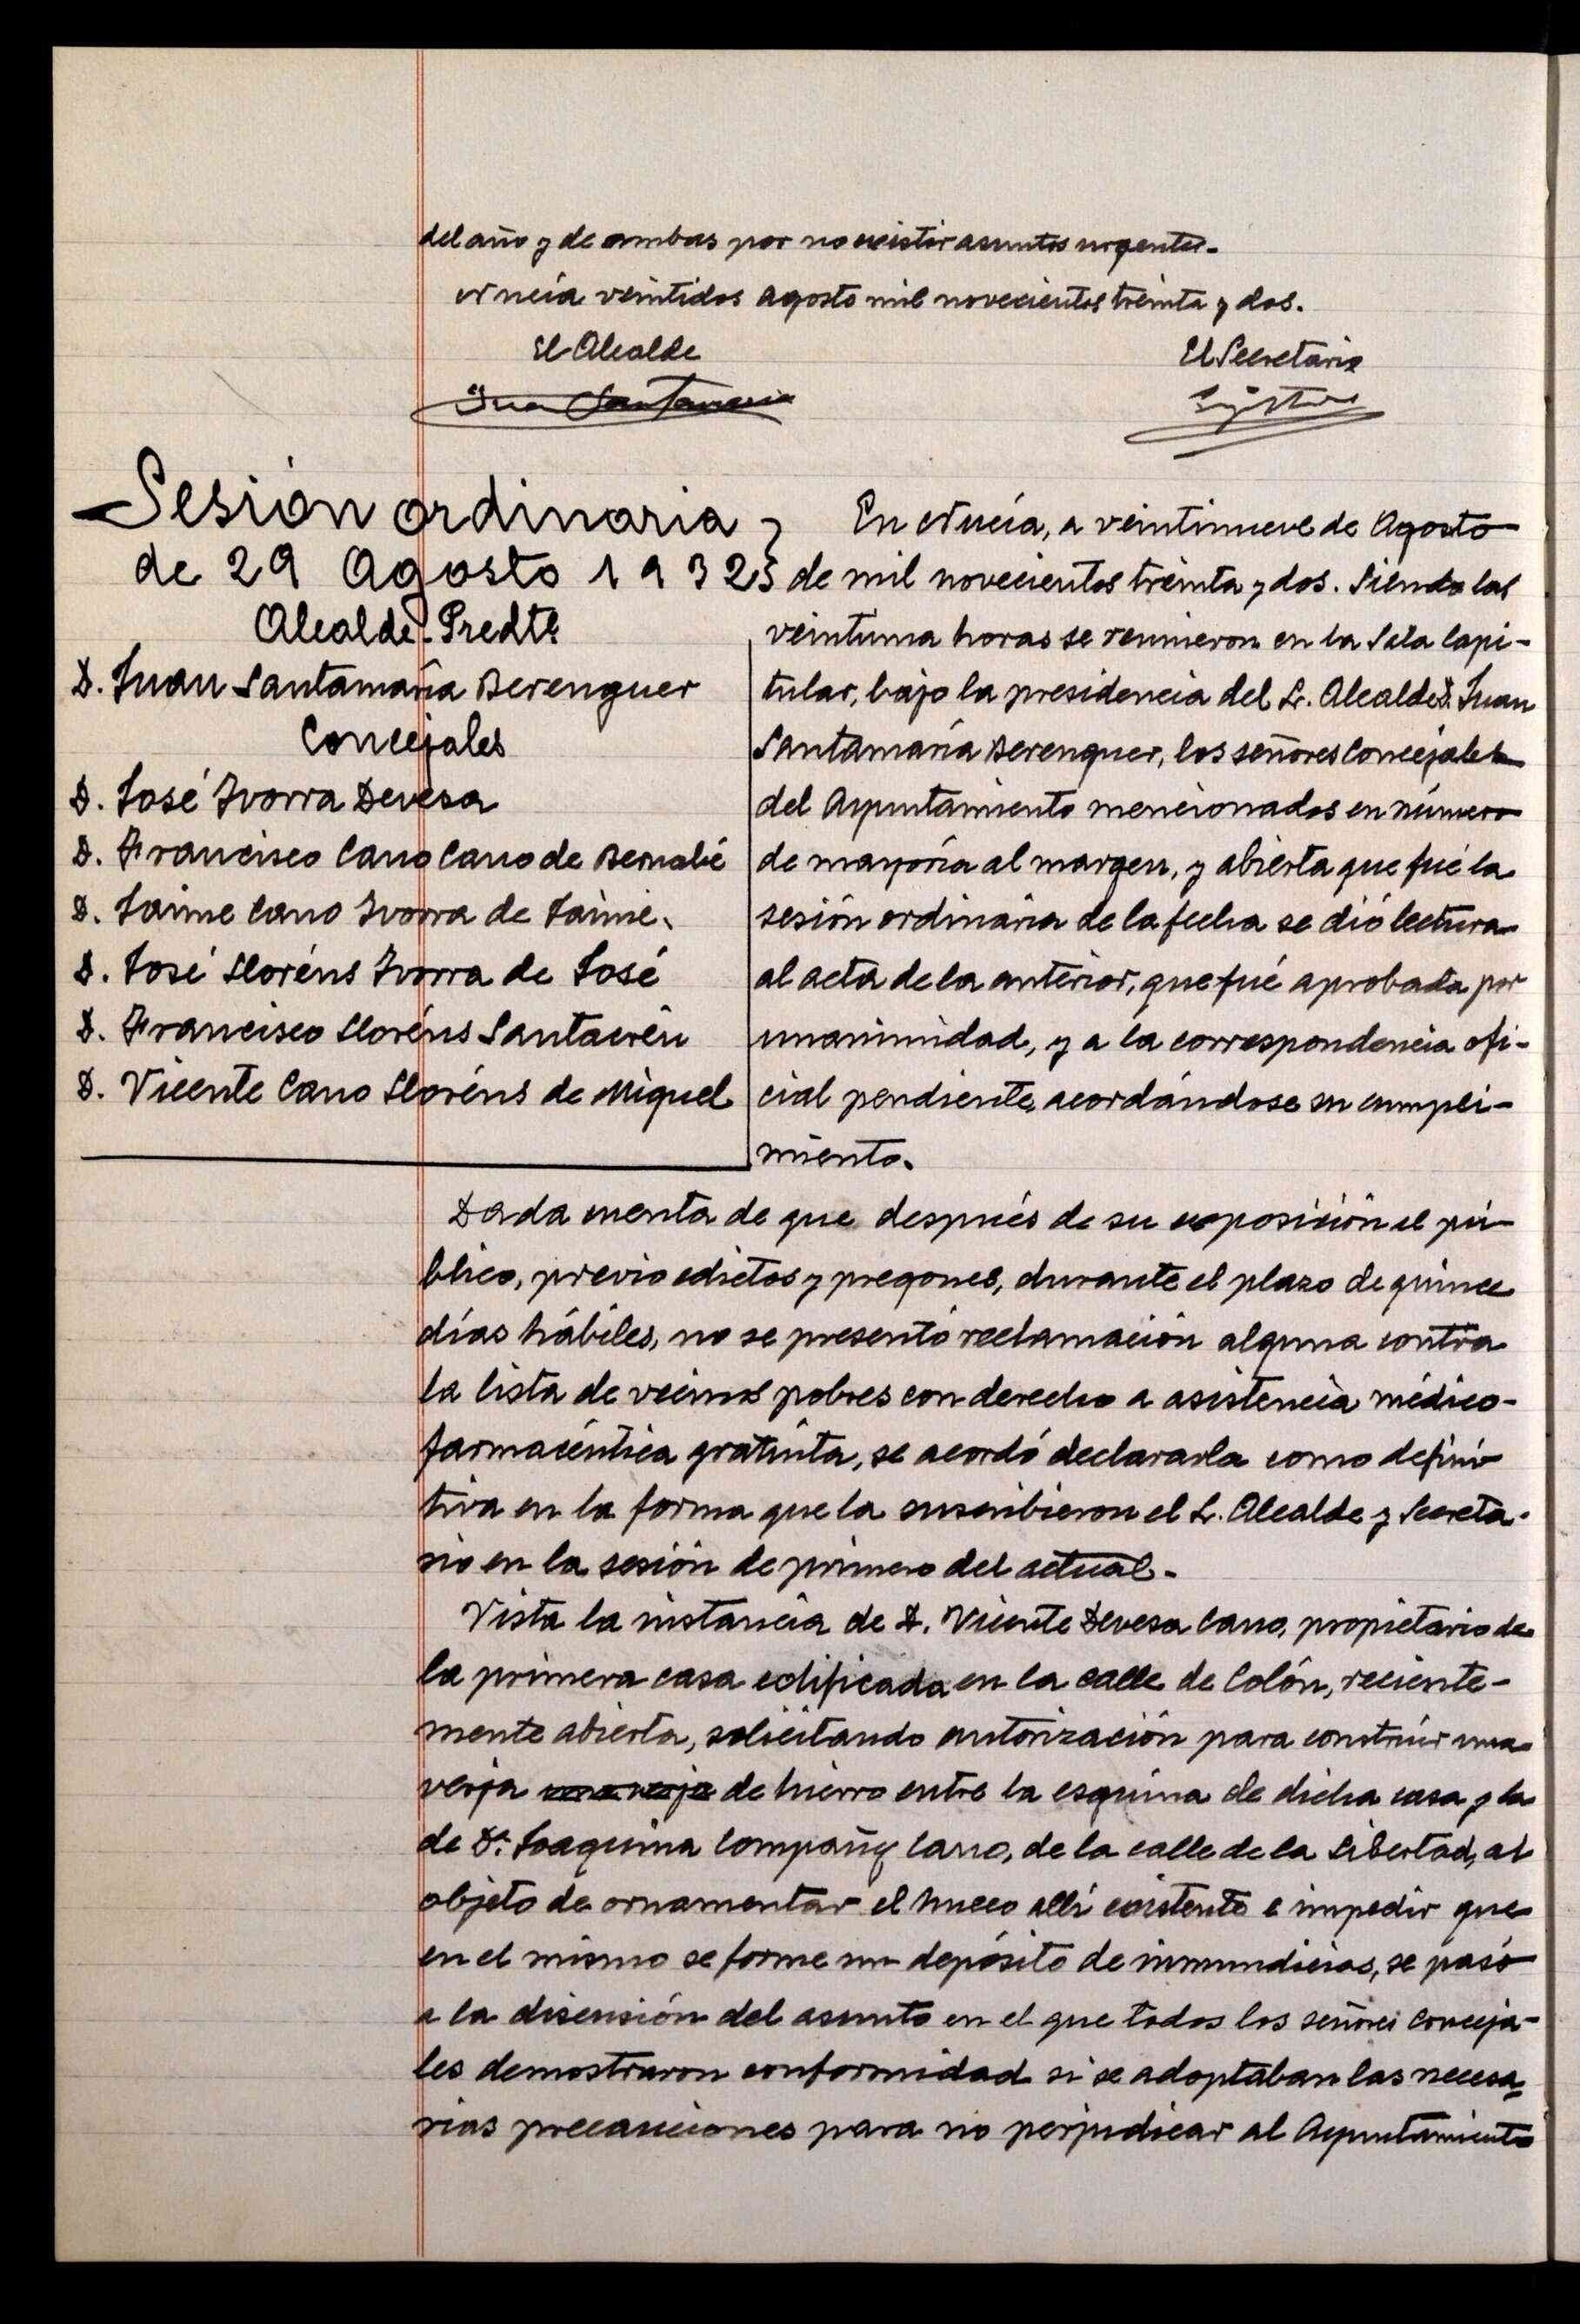 del año y de ambas por no existir asuntos urgentes.
Nucía veintidos Agosto mil novecientos treinta y dos.
El Alcalde
El Secretario
Juan Santamaria
Sesión ordinaria
de 29 Agosto 1932
Alcalde-Predte
D. Juan Santamaría Berenguer
Concejales
D. José Ivorra Devesa
D. Francisco Cano Cano de Bernabé
D. Jaime Cano Ivorra de Jaime.
D. José Lloréns Ivorra de José
D. Francisco Lloréns Santacréu
D. Vicente Cano Lloréns de Miguel
En Nucía, a veintinueve de Agosto
de mil novecientos treinta y dos. Siendo las
veintiuna horas se reunieron en la Sala Capi-
tular, bajo la presidencia del Sr. Alcalde D. Juan
Santamaría Berenguer, los señores Concejales
del Ayuntamiento mencionados en número
de mayoría al margen, y abierta que fué la
sesión ordinaria de la fecha se dió lectura
al acta de la anterior, que fué aprobada por
unanimidad, y a la correspondencia ofi-
cial pendiente, acordándose su cumpli-
miento.
Dada cuenta de que después de su exposición al pú-
blico, previo edictos y pregones, durante el plazo de quince
días hábiles, no se presentó reclamación alguna contra
la lista de vecinos pobres con derecho a asistencia médico-
farmacéutica gratuíta, se acordó declararla como defini-
tiva en la forma que la suscribieron el Sr. Alcalde y Secreta-
rio en la sesión de primero del actual.
Vista la instancia de D. Vicente Devesa Cano, propietario de
la primera casa edificada en la calle de Colón, reciente-
mente abierta, solicitando autorización para construír una
verja una verja de hierro entre la esquina de dicha casa y la
de Dª. Joaquina Compañy Cano, de la calle de la Libertad, al
objeto de ornamentar el hueco allí existente e impedir que
en el mismo se forme un depósito de inmundicias, se pasó
a la discusión del asunto en el que todos los señores Conceja-
les demostraron conformidad si se adoptaban las necesa-
rias precauciones para no perjudicar al Ayuntamiento